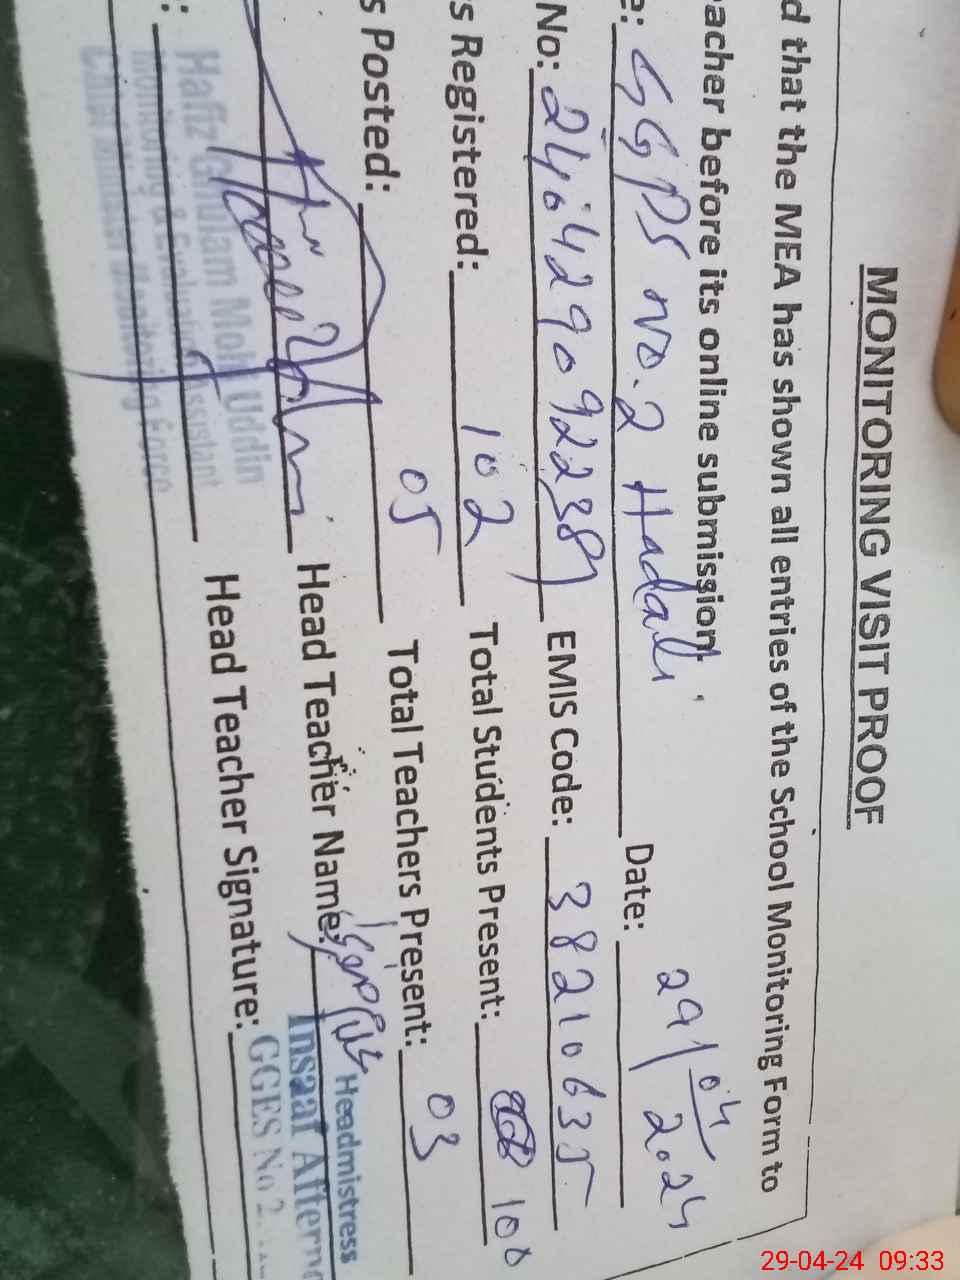 MONITORING VISIT PROOF
d that the MEA has shown all entries of the School Monitoring Form to
eacher before its online submission.
e: GGPS No. 2 Hadali Date: 29/04/2024
No: EMIS Code: 38210635
s Registered: 102 Total Students Present: 100
s Posted: 05 Total Teachers Present: 03
Head Teacher Name:
Head Teacher Signature:
Hafiz Ghulam Mohi Uddin
Monitoring & Evaluation Assistant
Chief Minister Monitoring Force
Headmistress
Insaaf Aftern
GGES No 2,
29-04-24 09:33